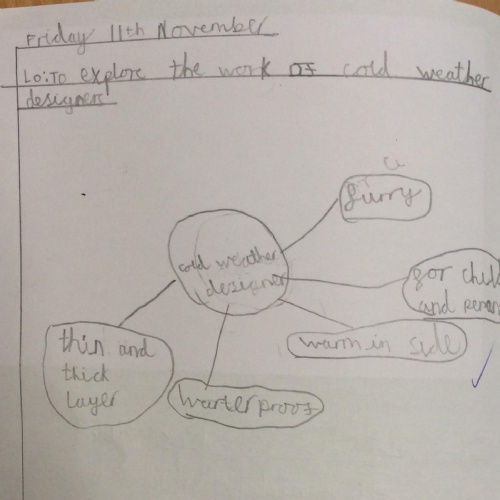 Friday 11th November
LO: To explore the work of cold weather
designers
furry
cold weather
designer
for child
and
warm in side
thin and
thick
layer
warterproof